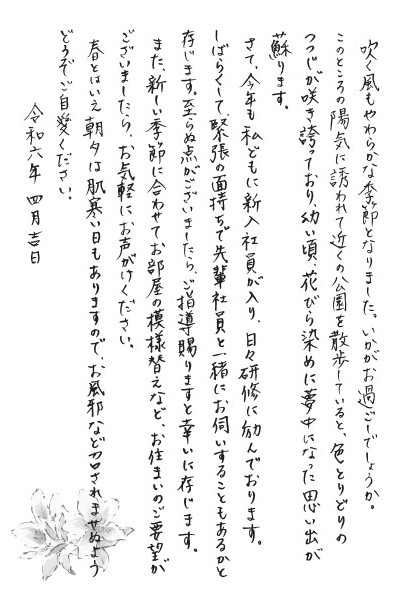 吹く風もやわらかな季節となりました。いかがお過ごしでしょうか。
このところの陽気に誘われて近くの公園を散歩していると、色とりどりの
つつじが咲き誇っており、幼い頃、花びら染めに夢中になった思い出が
蘇ります。
さて、今年も私どもに新入社員が入り、日々研修に励んでおります。
しばらくして、緊張の面持ちで先輩社員と一緒にお伺いすることもあるかと
存じます。至らぬ点がございましたら、ご指導賜りますと幸いに存じます。
また、新しい季節に合わせてお部屋の模様替えなど、お住まいのご要望が
ございましたら、お気軽にお声がけください。
春とはいえ朝夕は肌寒い日もありますので、お風邪など召されませぬよう
どうぞご自愛ください。
令和六年 四月吉日